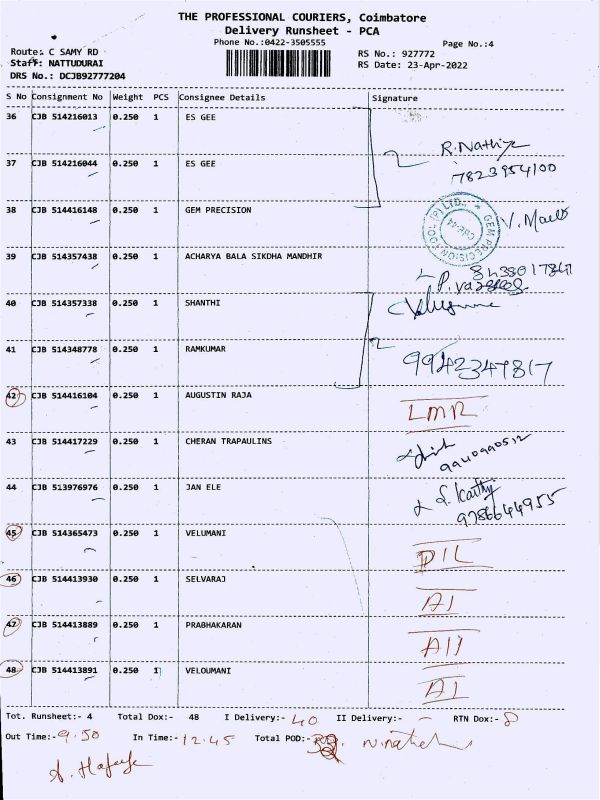 THE PROFESSIONAL COURIERS, Coimbatore
Delivery Runsheet - PCA
Phone No.:0422-3505555 Page No.:4
Route: C SAMY RD RS No.: 927772
Staff: NATTUDURAI RS Date: 23-Apr-2022
DRS No.: DCJB92777204
S No Consignment No Weight PCS Consignee Details Signature
36 CJB 514216013 0.250 1 ES GEE
R.Nathiya
37 CJB 514216044 0.250 1 ES GEE
7823954100
38 CJB 514416148 0.250 1 GEM PRECISION
GEM PRECISION TOOL (P) LTD., CBE-44
39 CJB 514357438 0.250 1 ACHARYA BALA SIKDHA MANDHIR
40 CJB 514357338 0.250 1 SHANTHI
41 CJB 514348778 0.250 1 RAMKUMAR
9942347817
42 CJB 514416104 0.250 1 AUGUSTIN RAJA
LMR
43 CJB 514417229 0.250 1 CHERAN TRAPAULINS
9940990512
44 CJB 513976976 0.250 1 JAN ELE
9786644955
45 CJB 514365473 0.250 1 VELUMANI
DIL
46 CJB 514413930 0.250 1 SELVARAJ
AI
47 CJB 514413889 0.250 1 PRABHAKARAN
48 CJB 514413891 0.250 1 VELOUMANI
AI
Tot. Runsheet:- 4 Total Dox:- 48 I Delivery:- 40 II Delivery:- - RTN Dox:- 8
Out Time:- 9.50 In Time:- 12.45 Total POD:-